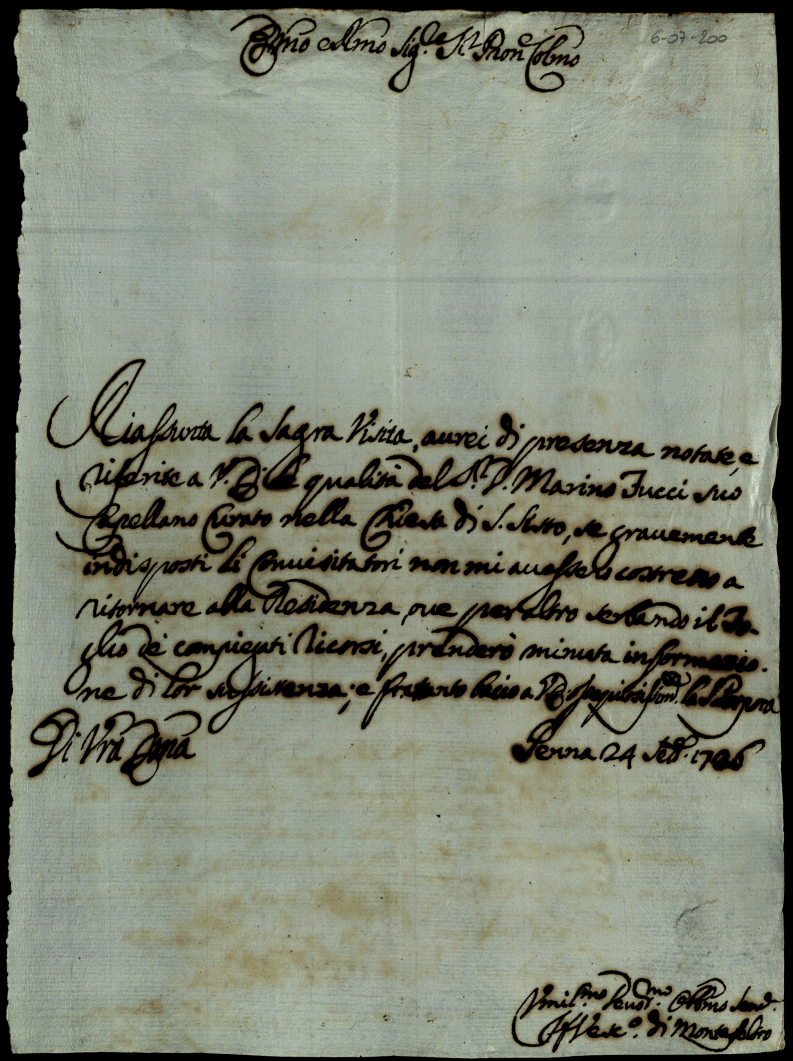 Emo e Rmo Sig.re Sr Pron.e Colmo
6-07-200
Riassunta la Sagra Visita, aurei di presenza notate, e
riferite a V. E. le qualità del Sr. D. Marino Tucci suo
Capellano Curato nella Chiesa di S. Sisto, se gravemente
indisposti li Convisitatori non mi avessero costretto a
ritornare alla Residenza, ove per altro serbando il Fo-
glio de compiegati Ricorsi, prenderò minuta informazio-
ne di lor sussistenza; e frattanto bacio a V. E. ossequiosissim.te la Porpora
Di Vra Emza
Penna 24 Feb. 1706
Vmil.mo Deuot.mo Obbmo Serud.
Il Vesc.o di Montefeltro